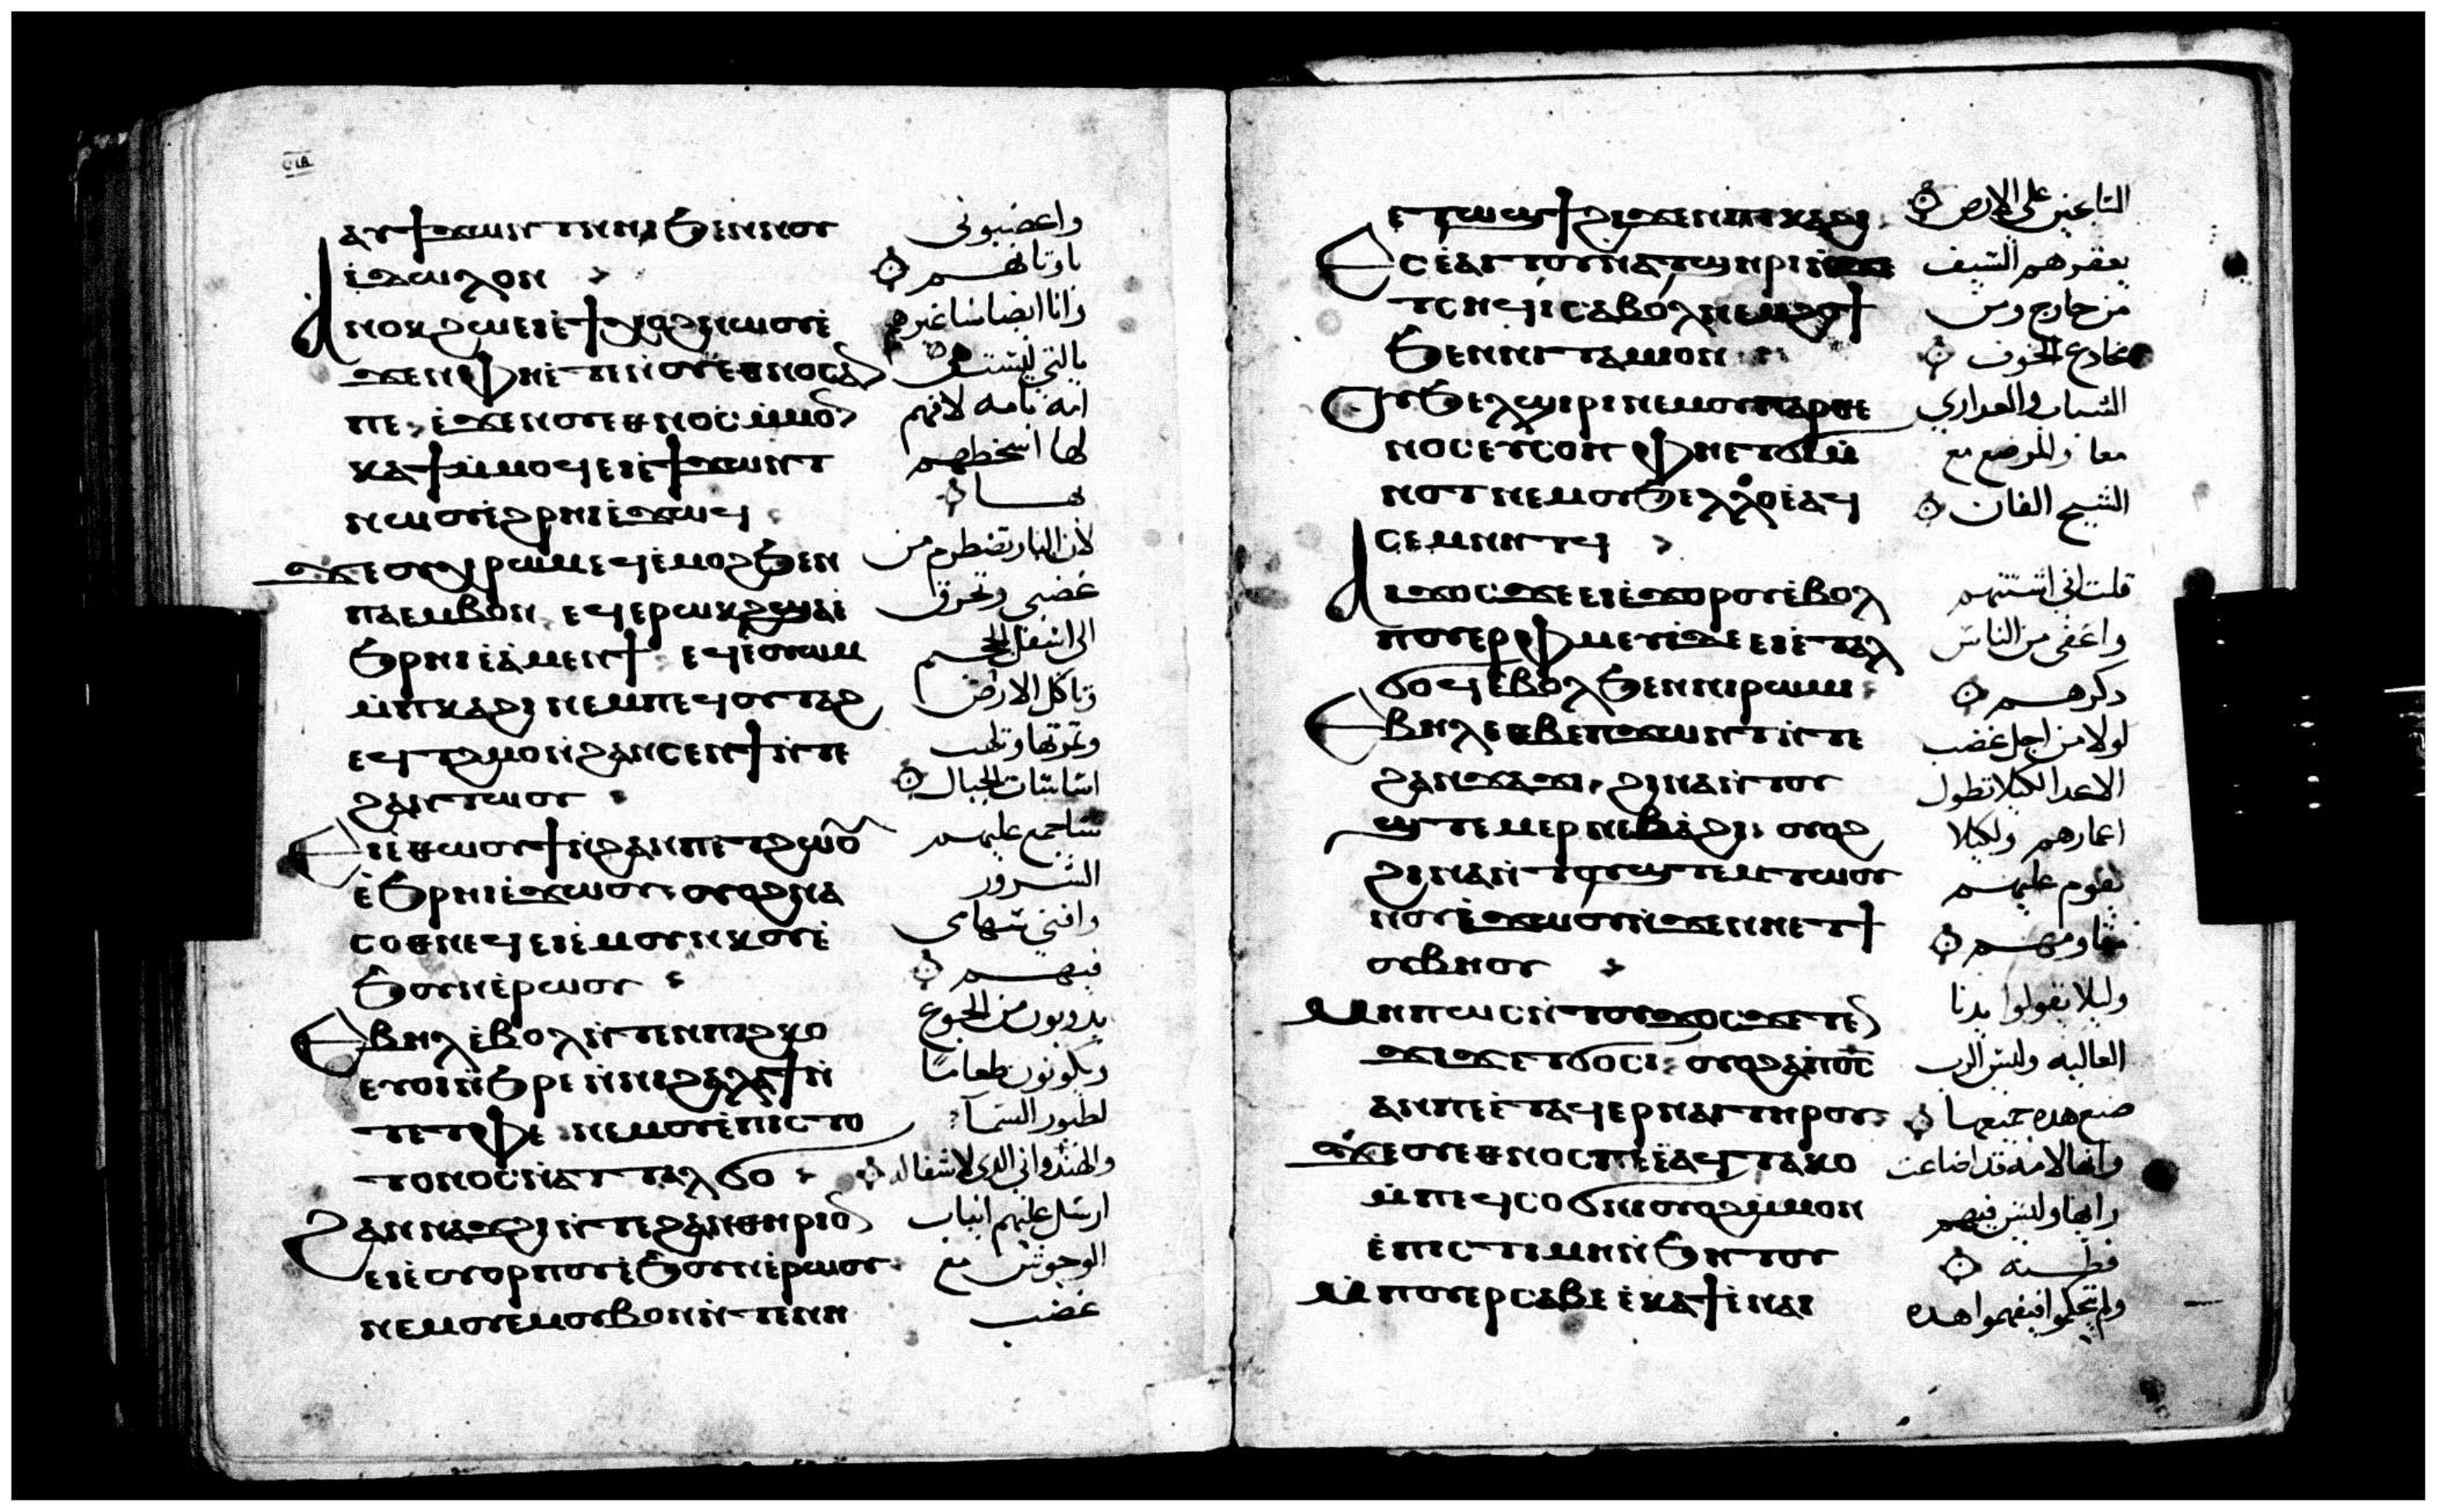 ⲁⲩϯϫⲱⲛⲧ ⲛⲏⲓ ϧⲉⲛⲛⲟⲩ
ⲓⲇⲱⲗⲟⲛ
ⲁⲛⲟⲕ ϩⲱ ⲉⲓⲉ̀ϯⲭⲟϩ ⲛⲱⲟⲩ ⲉ̀
ϫⲉⲛ ⲫⲏ ⲉⲧⲉ ⲛⲟⲩⲉⲑⲛⲟⲥ ⲁⲛ
ⲡⲉ ⲉ̀ϫⲉⲛ ⲟⲩⲉⲑⲛⲟⲥ ⲙ̀ⲙⲟⲛ
ⲕⲁϯ ⲙ̀ⲙⲟϥ ⲉⲓⲉ̀ϯϫⲱⲛⲧ
ⲛⲱⲟⲩ ⲉ̀ϩⲣⲏⲓ ⲉ̀ϫⲱϥ
ϫⲉ ⲟⲩⲭⲣⲱⲙ ⲉϥⲉ̀ⲙⲟϩ ϧⲉⲛ
ⲡⲁⲉⲙⲃⲟⲛ ⲉϥⲉⲣⲱⲕϩ ϣⲁ ⲉ̀
ϧⲣⲏⲓ ⲉ̀ⲁ̀ⲙⲉⲛϯ ⲉϥⲉ̀ⲟⲩⲱⲙ
ⲙ̀ⲡⲕⲁϩⲓ ⲛⲉⲙ ⲡⲉϥⲟⲩⲧⲁϩ
ⲉϥⲧϩⲙⲟ ⲛ̀ϩⲁⲛⲥⲉⲛϯ ⲛ̀ⲧⲉ
ϩⲁⲛⲧⲱⲟⲩ
ⲉⲓⲉ̀ⲑⲱⲟⲩϯ ⲛ̀ϩⲁⲛⲡⲉⲧϩⲱⲟⲩ
ⲉ̀ϧⲣⲏⲓ ⲉ̀ϫⲱⲟⲩ ⲟⲩⲟϩ ⲛⲁ
ⲥⲟⲑⲛⲉϥ ⲉⲓⲉ̀ⲙⲟⲩⲛⲕⲟⲩ ⲉ̀
ϧⲟⲩⲛ ⲉ̀ⲣⲱⲟⲩ
ⲉⲃⲏⲗ ⲉ̀ⲃⲟⲗ ⲛ̀ⲧⲉⲛ ⲡⲓϩⲕⲟ
ⲉⲩⲟⲓ ⲛ̀ϧⲣⲉ ⲛ̀ⲛⲓϩⲁⲗⲁϯ ⲛ̀
ⲧⲉ ⲧⲫⲉ ⲛⲉⲙ ⲟⲩⲉ̀ⲡⲓⲥⲧⲟ
ⲧⲟⲛⲟⲥ ⲛ̀ⲁⲧⲧⲁⲗϭⲟ
ϩⲁⲛⲛⲁϫϩⲓ ⲛ̀ⲧⲉ ϩⲁⲛⲑⲏⲣⲓⲟⲛ
ⲉⲓⲉ̀ⲟⲩⲟⲣⲡⲟⲩ ⲉ̀ϧⲟⲩⲛ ⲉ̀ⲣⲱⲟⲩ
ⲛⲉⲙ ⲟⲩⲉⲙⲃⲟⲛ ⲛ̀ⲧⲉ ⲛⲏ
واغضبونى
باوثانهم
وانا ايضا ساغيرهم
بالتى ليست هى
امه بامه لافهم
لها اسخطهم
بها
لان النار تضطرم من
غضبى وتحرق
الى اسفل الجحيم
وتاكل الارض
وثمرتها وتلهب
اساسات الجبال
ساجمع عليهم
الشرور
وافنى سهامى
فيهم
يدوبون من الجوع
ويكونون طعاما
لطيور السما
الذى لا شفا له
ارسل عليهم انياب
الوحوش مع
غضب
ⲉⲧⲱϣϯ ϩⲓϫⲉⲛ ⲡⲓⲕⲁϩⲓ
ⲉⲥⲉ̀ⲁⲓⲧⲟⲩ ⲛ̀ⲁⲧϣⲏⲣⲓ ⲛ̀ϫⲉ
ⲧⲥⲏϥⲓ ⲥⲁⲃⲟⲗ ⲛⲉⲙ ϩⲟϯ
ϧⲉⲛ ⲛⲓⲧⲁⲙⲓⲟⲛ
ⲟⲩϧⲉⲗϣⲓⲣⲓ ⲛⲉⲙ ⲟⲩⲡⲁⲣⲑⲉ
ⲛⲟⲥ ⲉⲩⲥⲟⲡ ⲫⲏ ⲉⲧⲟⲩⲉⲙ
ϭⲓ ⲛⲉⲙ ⲟⲩϧⲉⲗⲗⲟ ⲉ̀ⲁϥ
ⲥⲉⲙⲛⲏⲧϥ
ⲁⲓϫⲟⲥ ϫⲉ ⲉⲓⲉ̀ϫⲟⲣⲟⲩ ⲉ̀ⲃⲟⲗ
ⲡⲟⲩⲉⲣⲫⲙⲉⲩⲓ ⲇⲉ ⲉⲓⲉ̀ⲧⲁⲗ
ϭⲟϥ ⲉ̀ⲃⲟⲗ ϧⲉⲛ ⲛⲓⲣⲱⲙⲓ
ⲉⲃⲏⲗ ⲉⲑⲃⲉ ⲡϫⲱⲛⲧ ⲛ̀ⲧⲉ
ϩⲁⲛϫⲁϫⲓ ϩⲓⲛⲁ ⲛ̀ⲧⲟⲩ
ϣⲧⲉⲙⲉⲣ ⲛⲓϣϯ ⲛ̀ⲁϩⲓ ⲟⲩⲟϩ
ϩⲓⲛⲁ ⲛ̀ⲧⲟⲩϣⲧⲉⲙⲧⲱⲟⲩ
ⲛⲟⲩ ⲉ̀ϫⲱⲟⲩ ⲛ̀ϫⲉ ⲛⲏ ⲉⲧϯ
ⲟⲩⲃⲏⲟⲩ
ⲙⲏⲡⲱⲥ ⲛ̀ⲧⲟⲩϫⲟⲥ ϫⲉ ⲧⲉⲛ
ϫⲓϫ ⲉⲧϭⲟⲥⲓ ⲟⲩⲟϩ ⲁ̀ⲡϭⲥ
ⲁⲛ ⲡⲉ ⲉ̀ⲧⲁϥⲉⲣ ⲛⲁⲓ ⲧⲏⲣⲟⲩ
ϫⲉ ⲟⲩⲉⲑⲛⲟⲥ ⲡⲉ ⲉ̀ⲁϥⲧⲁⲕⲟ
ⲙ̀ⲡⲉϥⲥⲟϭⲛⲓ ⲟⲩⲟϩ ⲙ̀ⲙⲟⲛ
ⲉ̀ⲡⲓⲥⲧⲓⲙⲏ ⲛ̀ϧⲏⲧⲟⲩ
ⲙ̀ⲡⲟⲩⲉⲣⲥⲁⲃⲉ ⲉ̀ⲕⲁϯ ⲉ̀ⲛⲁⲓ
على الارض
يعقرهم السيف
من خارج ومن
مخادع الخوف
الشباب والعدارى
معا والمرضع مع
الشيخ الفان
قلت انى اشتتهم
واعفى من الناس
دكرهم
لولا من اجل غضب
الاعدا لكيلا تطول
اعمارهم ولكيلا
يقوم عليهم
مقاومهم
وليلا يقولوا يدنا
العاليه وليس الرب
صنع هده جميعها
وانها لامه قد اضاعت
رايها وليس فيهم
فطنه
ولم يتحكموا فيفهموا هده